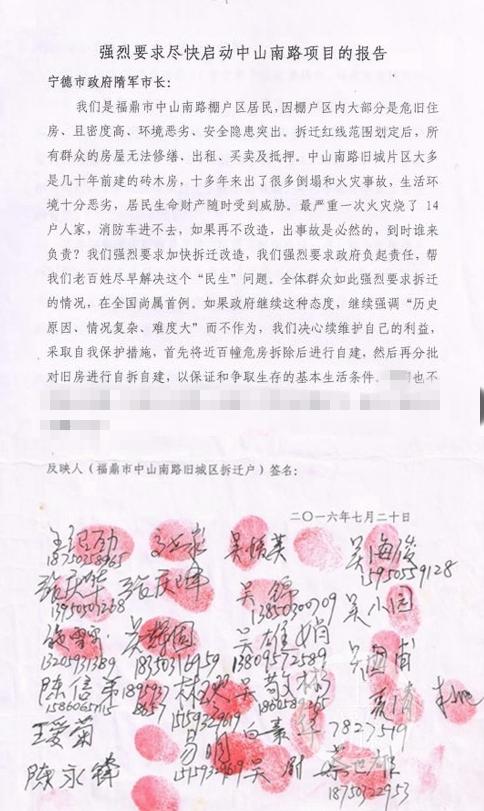 强烈要求尽快启动中山南路项目的报告
宁德市政府隋军市长：
我们是福鼎市中山南路棚户区居民，因棚户区内大部分是危旧住
房、且密度高、环境恶劣、安全隐患突出。拆迁红线范围划定后，所
有群众的房屋无法修缮、出租、买卖及抵押。中山南路旧城片区大多
是几十年前建的砖木房，十多年来出了很多倒塌和火灾事故，生活环
境十分恶劣，居民生命财产随时受到威胁。最严重一次火灾烧了 14
户人家，消防车进不去，如果再不改造，出事故是必然的，到时谁来
负责？我们强烈要求加快拆迁改造，我们强烈要求政府负起责任，帮
我们老百姓尽早解决这个“民生”问题。全体群众如此强烈要求拆迁
的情况，在全国尚属首例。如果政府继续这种态度，继续强调“历史
原因、情况复杂、难度大”而不作为，我们决心续维护自己的利益，
采取自我保护措施，首先将近百幢危房拆除后进行自建，然后再分批
对旧房进行自拆自建，以保证和争取生存的基本生活条件。 也不
反映人（福鼎市中山南路旧城区拆迁户）签名：
二〇一六年七月二十日
吴海俊
18750258965 15950559128
张庆华 吴锦 吴小园
13950507268 13850300709
吴雄娟
13205931389 18350316959 13809572589
陈信弟 吴敬彬
15860657115
王爱菊 易明 7827519
陈永锋 吴尉 蔡世雄
18750322953